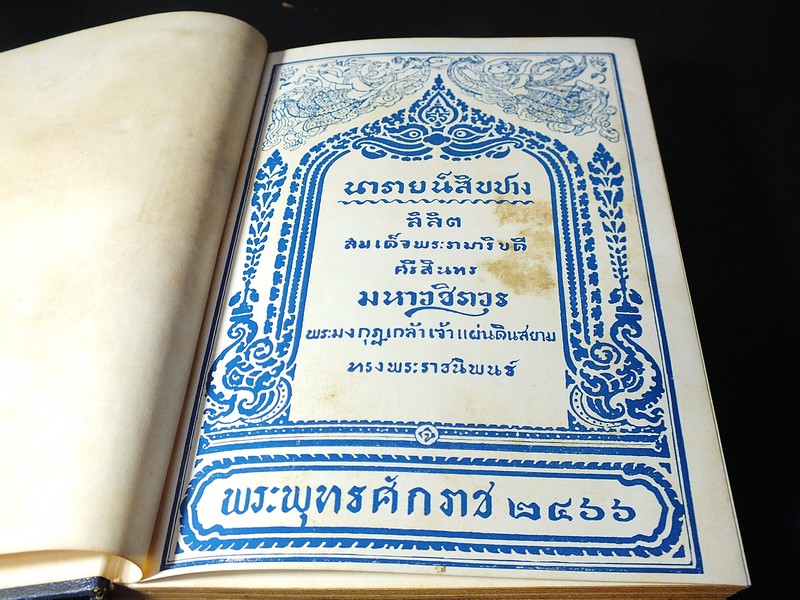 นารายน์สิบปาง
ลิลิต
สมเด็จพระรามาธิบดี
ศรีสินทร
มหาวชิราวุธ
พระมงกุฎเกล้าเจ้าแผ่นดินสยาม
ทรงพระราชนิพนธ์
พระพุทธศักราช ๒๔๖๖